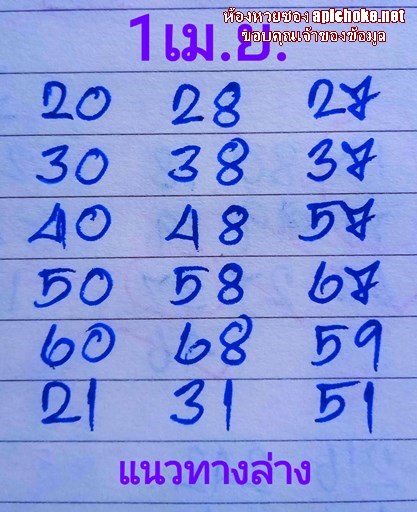 ห้องหวยซอง aplchoke.net
ขอบคุณเจ้าของข้อมูล
1 เม.ย.
20 28 27
30 38 37
40 48 57
50 58 67
60 68 59
21 31 51
แนวทางล่าง